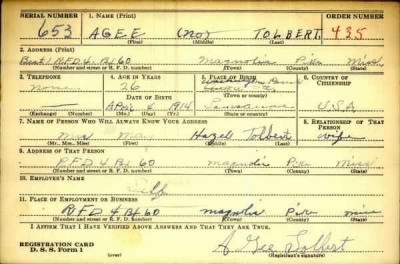 SERIAL NUMBER 1. NAME (Print) ORDER NUMBER
653 AGEE (no) TOLBERT 435
(First) (Middle) (Last)
2. ADDRESS (Print)
Box 1 RFD 4 Bx 60 Magnolia Pike Miss
(Number and street or R. F. D. number) (Town) (County) (State)
3. TELEPHONE 4. AGE IN YEARS 5. PLACE OF BIRTH 6. COUNTRY OF CITIZENSHIP
none 26 Washington
DATE OF BIRTH (Town or county)
Apr 6 1914 Louisiana U S A
(Exchange) (Number) (Mo.) (Day) (Yr.) (State or country)
7. NAME OF PERSON WHO WILL ALWAYS KNOW YOUR ADDRESS 8. RELATIONSHIP OF THAT PERSON
Mrs May Hazel Tolbert wife
(Mr., Mrs., Miss) (First) (Middle) (Last)
9. ADDRESS OF THAT PERSON
RFD 4 Bx 60 Magnolia Pike Miss
(Number and street or R. F. D. number) (Town) (County) (State)
10. EMPLOYER'S NAME
Self
11. PLACE OF EMPLOYMENT OR BUSINESS
RFD 4 Bx 60 Magnolia Pike Miss
(Number and street or R. F. D. number) (Town) (County) (State)
I AFFIRM THAT I HAVE VERIFIED ABOVE ANSWERS AND THAT THEY ARE TRUE.
REGISTRATION CARD A Gee Tolbert
D. S. S. Form 1 (over) (Registrant's signature)